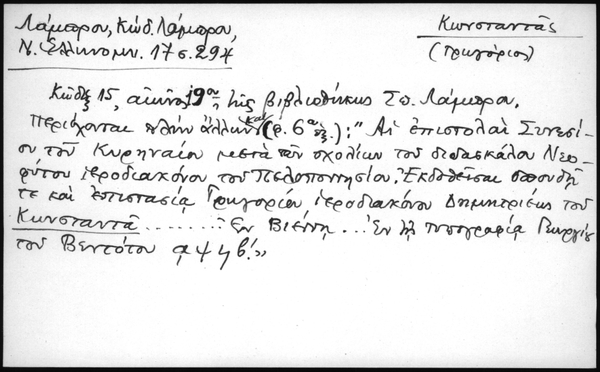 Λάμπρου, Κώδ. Λάμπρου,
Ν. Ελληνομν. 17 σ. 294
Κωνσταντᾶς
(Γρηγόριος)
Κώδιξ 15, αἰῶνος 19ου, τῆς βιβλιοθήκης Σπ. Λάμπρου.
Περιέχονται πλὴν ἄλλων καὶ (φ. 6α ἑξ.): "Αἱ ἐπιστολαὶ Συνεσί-
ου τοῦ Κυρηναίου μετὰ τῶν σχολίων τοῦ διδασκάλου Νεο-
φύτου ἱεροδιακόνου τοῦ Πελοποννησίου. Ἐκδοθεῖσαι σπουδῇ
τε καὶ ἐπιστασίᾳ Γρηγορίου ἱεροδιακόνου Δημητριέως τοῦ
Κωνσταντᾶ ......... Ἐν Βιέννῃ ... Ἐν τῇ τυπογραφίᾳ Γεωργίου
τοῦ Βεντότου αψϟβ'.»